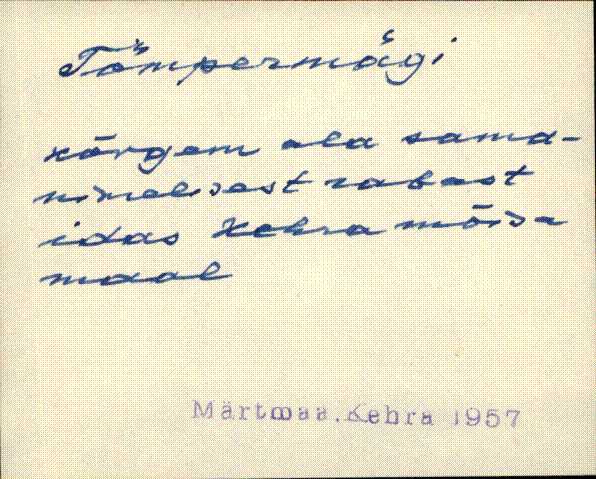 Tömpermägi
kõrgem ala sama-
nimelisest rabast
idas Kehra mõisa
maal
Märtmaa. Kehra 1957